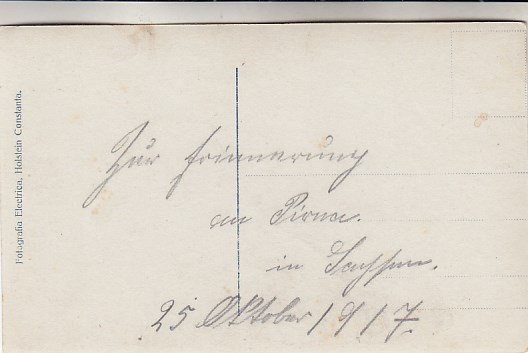 Fotografia Electrica, Holstein Constanta.
Zur Erinnerung
an Pirna.
in Sachsen.
25 Oktober 1917.